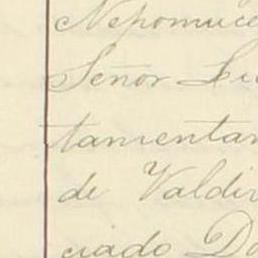 Nepomuce
Señor Lic
tamentar
de Valdiv
ciado Do